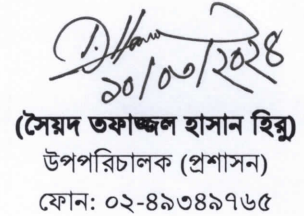 ২০/০৩/২০২৪
(সৈয়দ তফাজ্জল হাসান হিরু)
উপপরিচালক (প্রশাসন)
ফোন: ০২-৪৯৩৪৯৭৬৫